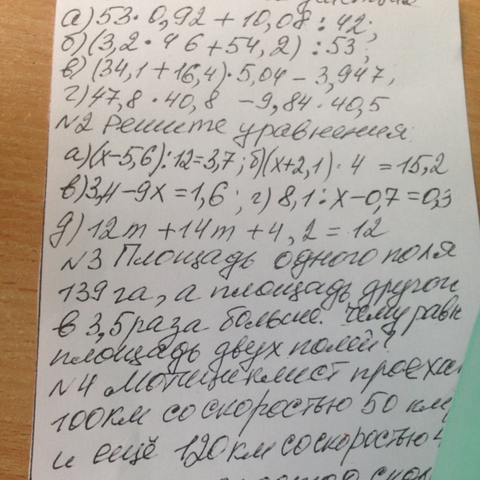 а) 53 · 0,92 + 10,08 : 42;
б) (3,2 · 46 + 54,2) : 53;
в) (34,1 + 16,4) · 5,04 - 3,947,
г) 47,8 · 40,8 - 9,84 · 40,5
N2 Решите уравнения:
а) (x-5,6):12=3,7; б) (x+2,1) · 4 = 15,2
в) 3,4-9x=1,6; г) 8,1:x-0,7=0,3
д) 12m + 14m + 4,2 = 12
N3 Площадь одного поля
139 га, а площадь другого
в 3,5 раза больше. Чему равн
площадь двух полей?
N4 Мотоциклист проеха
100км со скоростью 50 км
и ещё 120км со скоростью 4